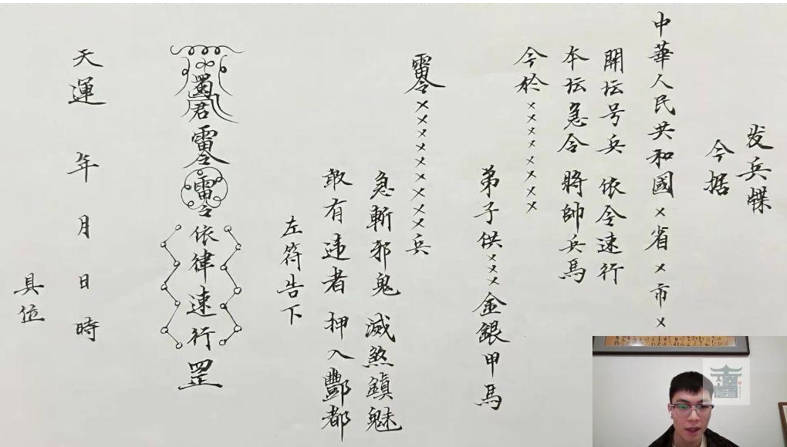 发兵牒
今据
中華人民共和國×省×市×
開坛号兵 依令速行
本坛急令 將帥兵馬
今於×××××××
弟子供×××金銀甲馬
雷令××××××××兵
急斬邪鬼 滅煞鎮魅
敢有违者 押入酆都
左符告下
蜀君 雷令 雷令 依律速行 罡
天運 年 月 日 時
具位